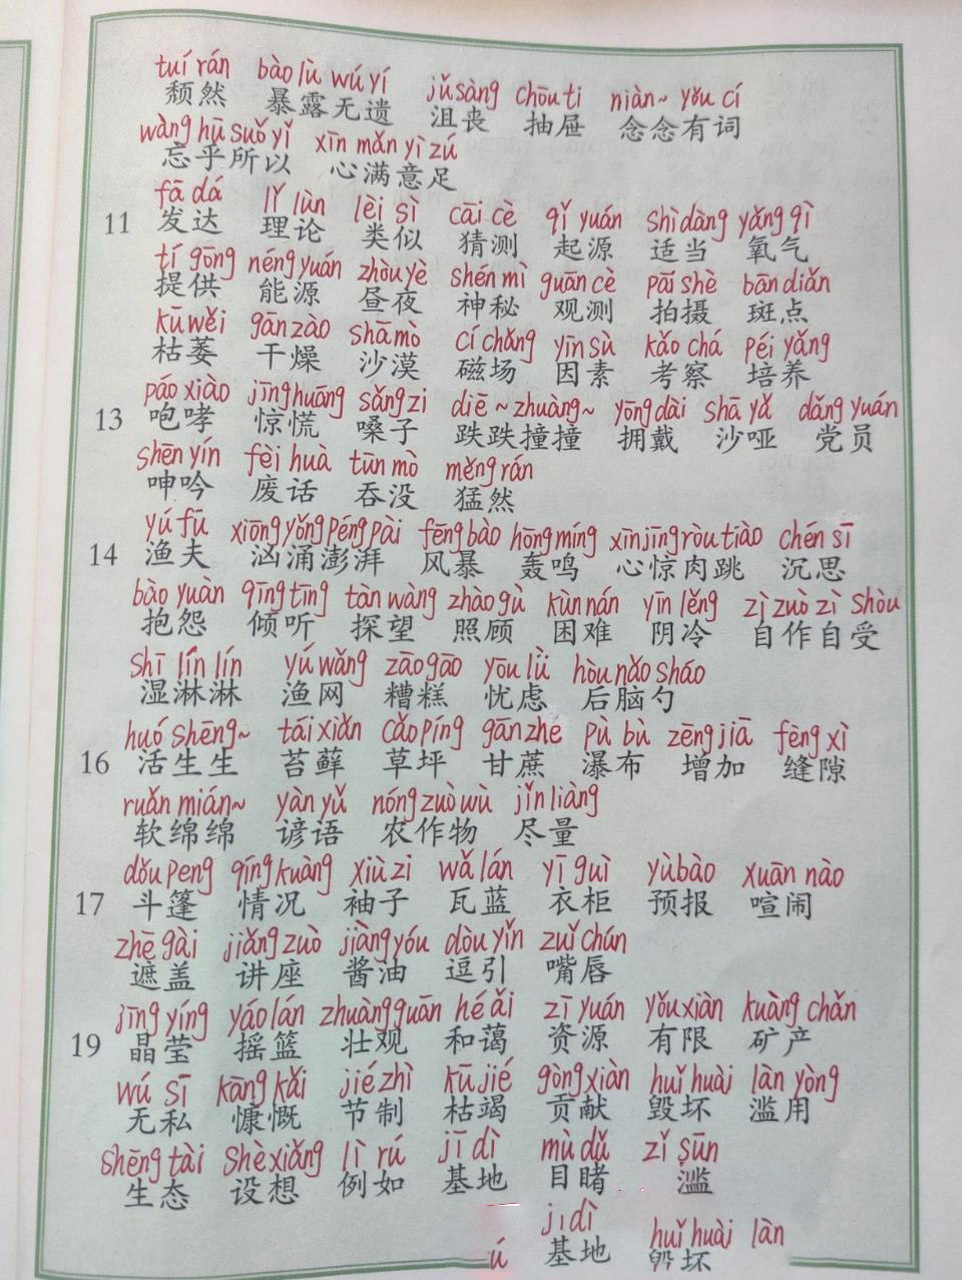 tuí rán bào lù wú yí jǔ sàng chōu ti niàn~ yǒu cí
颓然 暴露无遗 沮丧 抽屉 念念有词
wàng hū suǒ yǐ xīn mǎn yì zú
忘乎所以 心满意足
fā dá lǐ lùn lèi sì cāi cè qǐ yuán shì dàng yǎng qì
11 发达 理论 类似 猜测 起源 适当 氧气
tí gōng néng yuán zhòu yè shén mì guān cè pāi shè bān diǎn
提供 能源 昼夜 神秘 观测 拍摄 斑点
kū wěi gān zào shā mò cí chǎng yīn sù kǎo chá péi yǎng
枯萎 干燥 沙漠 磁场 因素 考察 培养
páo xiào jīng huāng sǎng zi diē~zhuàng~ yōng dài shā yǎ dǎng yuán
13 咆哮 惊慌 嗓子 跌跌撞撞 拥戴 沙哑 党员
shēn yín fèi huà tūn mò měng rán
呻吟 废话 吞没 猛然
yú fū xiōng yǒng péng pài fēng bào hōng míng xīn jīng ròu tiào chén sī
14 渔夫 汹涌澎湃 风暴 轰鸣 心惊肉跳 沉思
bào yuàn qīng tīng tàn wàng zhào gù kùn nán yīn lěng zì zuò zì shòu
抱怨 倾听 探望 照顾 困难 阴冷 自作自受
shī lín lín yú wǎng zāo gāo yōu lǜ hòu nǎo sháo
湿淋淋 渔网 糟糕 忧虑 后脑勺
huó shēng~ tái xiǎn cǎo píng gān zhe pù bù zēng jiā fèng xì
16 活生生 苔藓 草坪 甘蔗 瀑布 增加 缝隙
ruǎn mián~ yàn yǔ nóng zuò wù jǐn liàng
软绵绵 谚语 农作物 尽量
dǒu peng qíng kuàng xiù zi wǎ lán yī guì yù bào xuān nào
17 斗篷 情况 袖子 瓦蓝 衣柜 预报 喧闹
zhē gài jiǎng zuò jiàng yóu dòu yǐn zuǐ chún
遮盖 讲座 酱油 逗引 嘴唇
jīng yíng yáo lán zhuàng guān hé ǎi zī yuán yǒu xiàn kuàng chǎn
19 晶莹 摇篮 壮观 和蔼 资源 有限 矿产
wú sī kāng kǎi jié zhì kū jié gòng xiàn huǐ huài làn yòng
无私 慷慨 节制 枯竭 贡献 毁坏 滥用
shēng tài shè xiǎng lì rú jī dì mù dǔ zǐ sūn
生态 设想 例如 基地 目睹 滥
ú jī dì huǐ huài làn
基地 毁坏